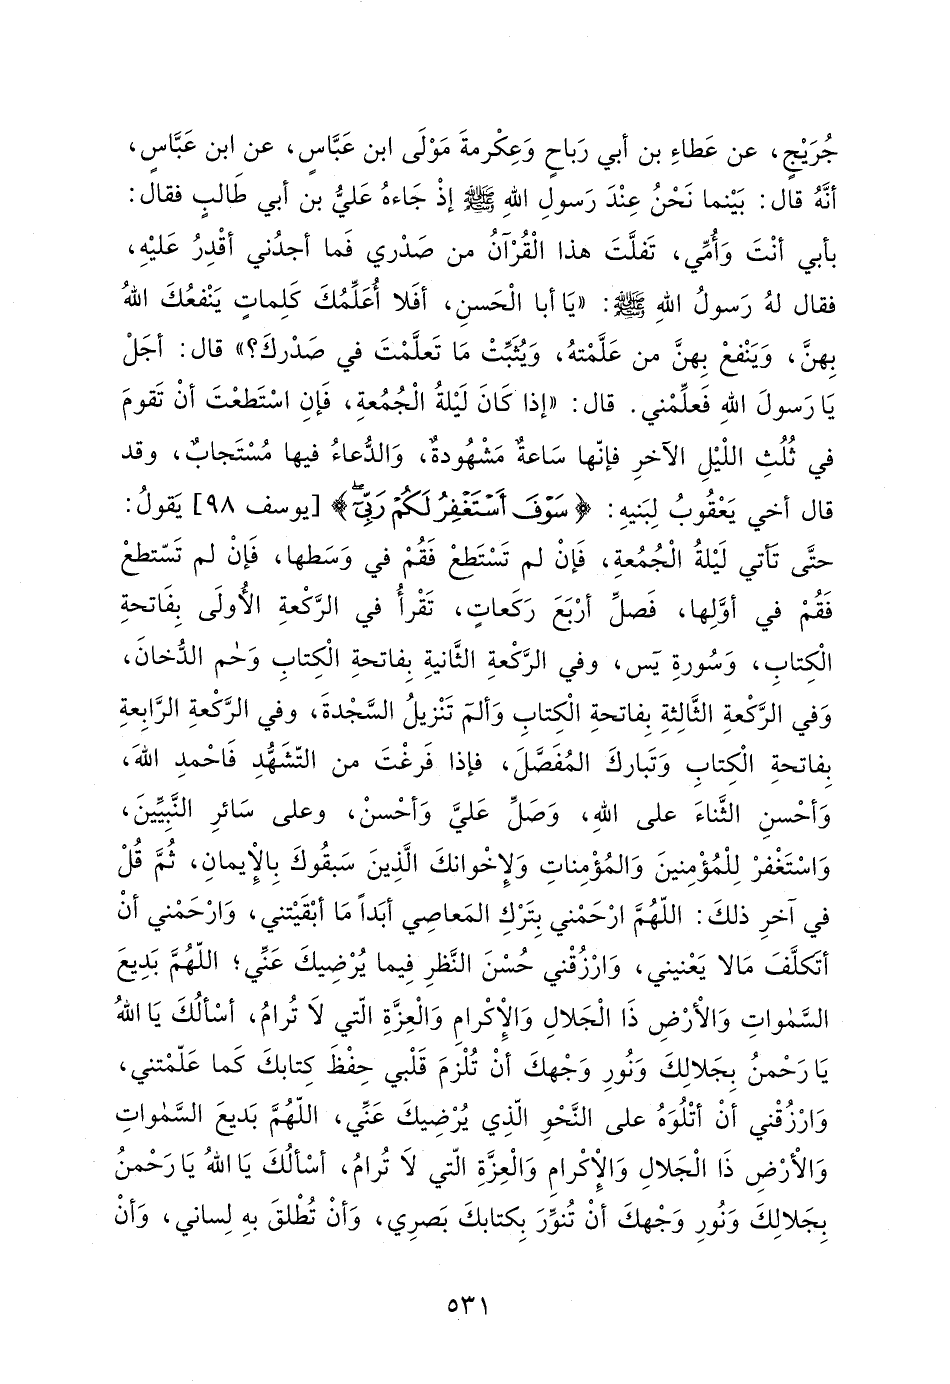 جُرَيْجٍ، عن عَطاءِ بن أبي رَباحٍ وَعِكْرمةَ مَوْلَى ابن عَبَّاسٍ، عن ابن عَبَّاسٍ،
أنَّهُ قال: بَيْنما نَحْنُ عِنْدَ رَسولِ اللهِ ﷺ إذْ جَاءهُ عَليُّ بن أبي طَالبٍ فقال:
بأبي أنْتَ وَأُمِّي، تَفلَّتَ هذا الْقُرْآنُ من صَدْري فَما أجدُني أقْدِرُ عَليْهِ،
فقال لهُ رَسولُ اللهِ ﷺ: «يَا أبا الْحَسنِ، أفَلا أُعَلِّمُكَ كَلِماتٍ يَنْفعُكَ اللهُ
بِهنَّ، وَيَنْفعْ بِهنَّ من عَلَّمْتهُ، وَيُثَبِّتْ مَا تَعلَّمْتَ في صَدْركَ؟» قال: أجَلْ
يَا رَسولَ اللهِ فَعلِّمْني. قال: «إذا كَانَ لَيْلةُ الْجُمُعةِ، فَإن اسْتَطعْتَ أنْ تَقومَ
في ثُلُثِ اللَّيْلِ الآخرِ فإنّها سَاعةٌ مَشْهُودةٌ، وَالدُّعاءُ فيها مُسْتَجابٌ، وقد
قال أخي يَعْقُوبُ لِبَنيهِ: ﴿سَوْفَ أَسْتَغْفِرُ لَكُمْ رَبِّيٓۖ﴾ [يوسف ٩٨] يَقولُ:
حتَّى تَأتي لَيْلةُ الْجُمُعةِ، فَإنْ لم تَسْتَطِعْ فَقُمْ في وَسَطها، فَإنْ لم تَسْتطعْ
فَقُمْ في أوَّلِها، فَصلِّ أرْبَعَ رَكَعاتٍ، تَقْرأُ في الرَّكْعةِ الأُولَى بِفَاتحةِ
الْكِتابِ، وَسُورةِ يَس، وفي الرَّكْعةِ الثَّانيةِ بِفاتحةِ الْكِتابِ وَحٰم الدُّخانَ،
وَفي الرَّكْعةِ الثَّالثةِ بِفاتحةِ الْكتابِ وَألمَ تَنْزيلُ السَّجْدةَ، وفي الرَّكْعةِ الرَّابعةِ
بِفاتحةِ الْكِتابِ وَتَباركَ المُفَصَّلَ، فإذا فَرغْتَ من التّشَهُّدِ فَاحْمدِ اللهَ،
وَأحْسنِ الثَّناءَ على اللهِ، وَصَلِّ عَليَّ وَأحْسنْ، وعلى سَائرِ النَّبيِّينَ،
وَاسْتَغْفرْ لِلْمُؤْمنينَ وَالمُؤْمناتِ وَلإخْوانكَ الَّذينَ سَبقُوكَ بِالْإيمانِ، ثُمَّ قُلْ
في آخرِ ذلكَ: اللّهُمَّ ارْحَمْني بِتَركِ المَعاصي أبَداً مَا أبْقَيْتني، وَارْحَمْني أنْ
أتكلَّفَ مَالا يَعْنيني، وَارْزُقْني حُسْنَ النَّظرِ فِيما يُرْضِيكَ عَنِّي؛ اللّهُمَّ بَدِيعَ
السَّمٰواتِ وَالْأرْضِ ذَا الْجَلالِ وَالْإكْرامِ وَالْعِزَّةِ الّتي لَا تُرامُ، أسْألُكَ يَا اللهُ
يَا رَحْمنُ بِجَلالِكَ وَنُورِ وَجْهكَ أنْ تُلْزمَ قَلْبي حِفْظَ كِتابكَ كَما عَلّمْتني،
وَارْزُقْني أنْ أتْلُوَهُ على النَّحْوِ الّذي يُرْضِيكَ عَنِّي، اللّهُمَّ بَديعَ السَّمٰواتِ
وَالْأرْضِ ذَا الْجَلالِ وَالْإكْرامِ وَالْعِزَّةِ الّتي لَا تُرامُ، أسْألُكَ يَا اللهُ يَا رَحْمنُ
بِجَلالِكَ وَنُورِ وَجْهكَ أنْ تُنوِّرَ بِكتابكَ بَصري، وَأنْ تُطْلقَ بهِ لِساني، وَأنْ
٥٣١